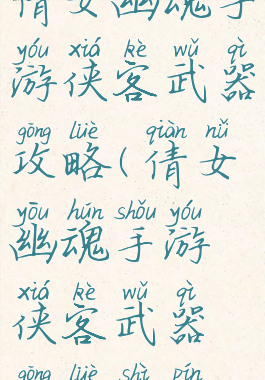 倩女幽魂手
yóu xiá kè wǔ qì
游侠客武器
gōng lüè qiàn nǚ
攻略(倩女
yōu hún shǒu yóu
幽魂手游
xiá kè wǔ qì
侠客武器
gōng lüè shì pín